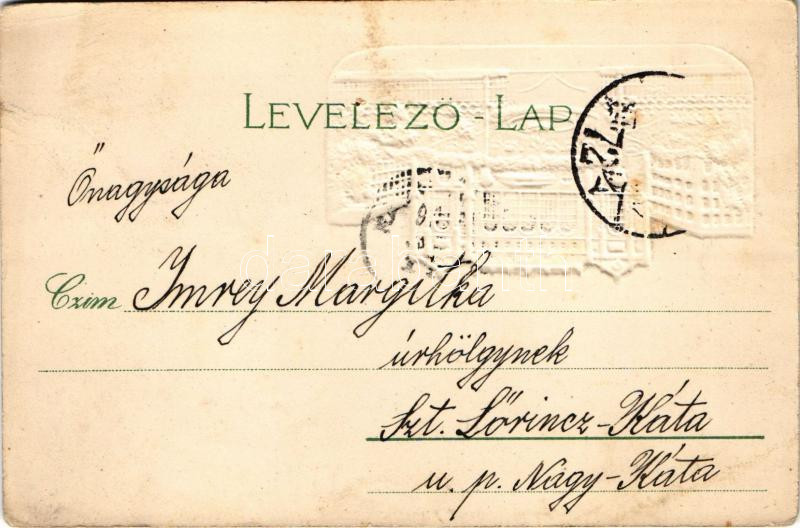 LEVELEZŐ-LAP
Őnagysága
Czim Imrey Margitka
úrhölgynek
Szt. Lőrincz-Káta
u. p. Nagy-Káta